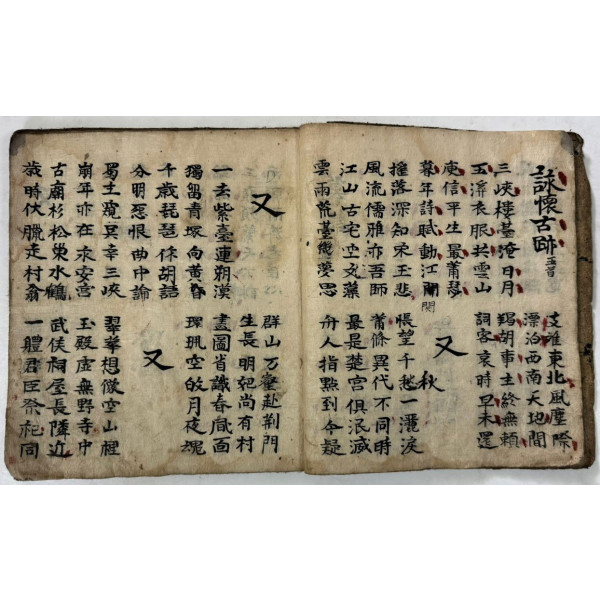 詠懷古跡 五首
支離東北風塵際
漂泊西南天地間
三峽樓臺淹日月
五溪衣服共雲山
羯胡事主終無賴
詞客哀時早未還
庾信平生最蕭瑟
暮年詩賦動江關
關
又
搖落深知宋玉悲
風流儒雅亦吾師
秋
悵望千愁一灑淚
蕭條異代不同時
江山古宅空文藻
雲雨荒臺幾夢思
最是楚宮俱泯滅
舟人指點到今疑
又
群山万壑赴荊門
生長明妃尚有村
一去紫臺連朔漠
獨留青塚向黃昏
畫圖省識春風面
環珮空皈月夜魂
千歲琵琶作胡語
分明怨恨曲中論
又
蜀主窺吳幸三峽
崩年亦在永安宮
翠華想像空山裡
玉殿虛無野寺中
古廟杉松巢水鶴
歲時伏臘走村翁
武侯祠屋長隣近
一體君臣祭祀同